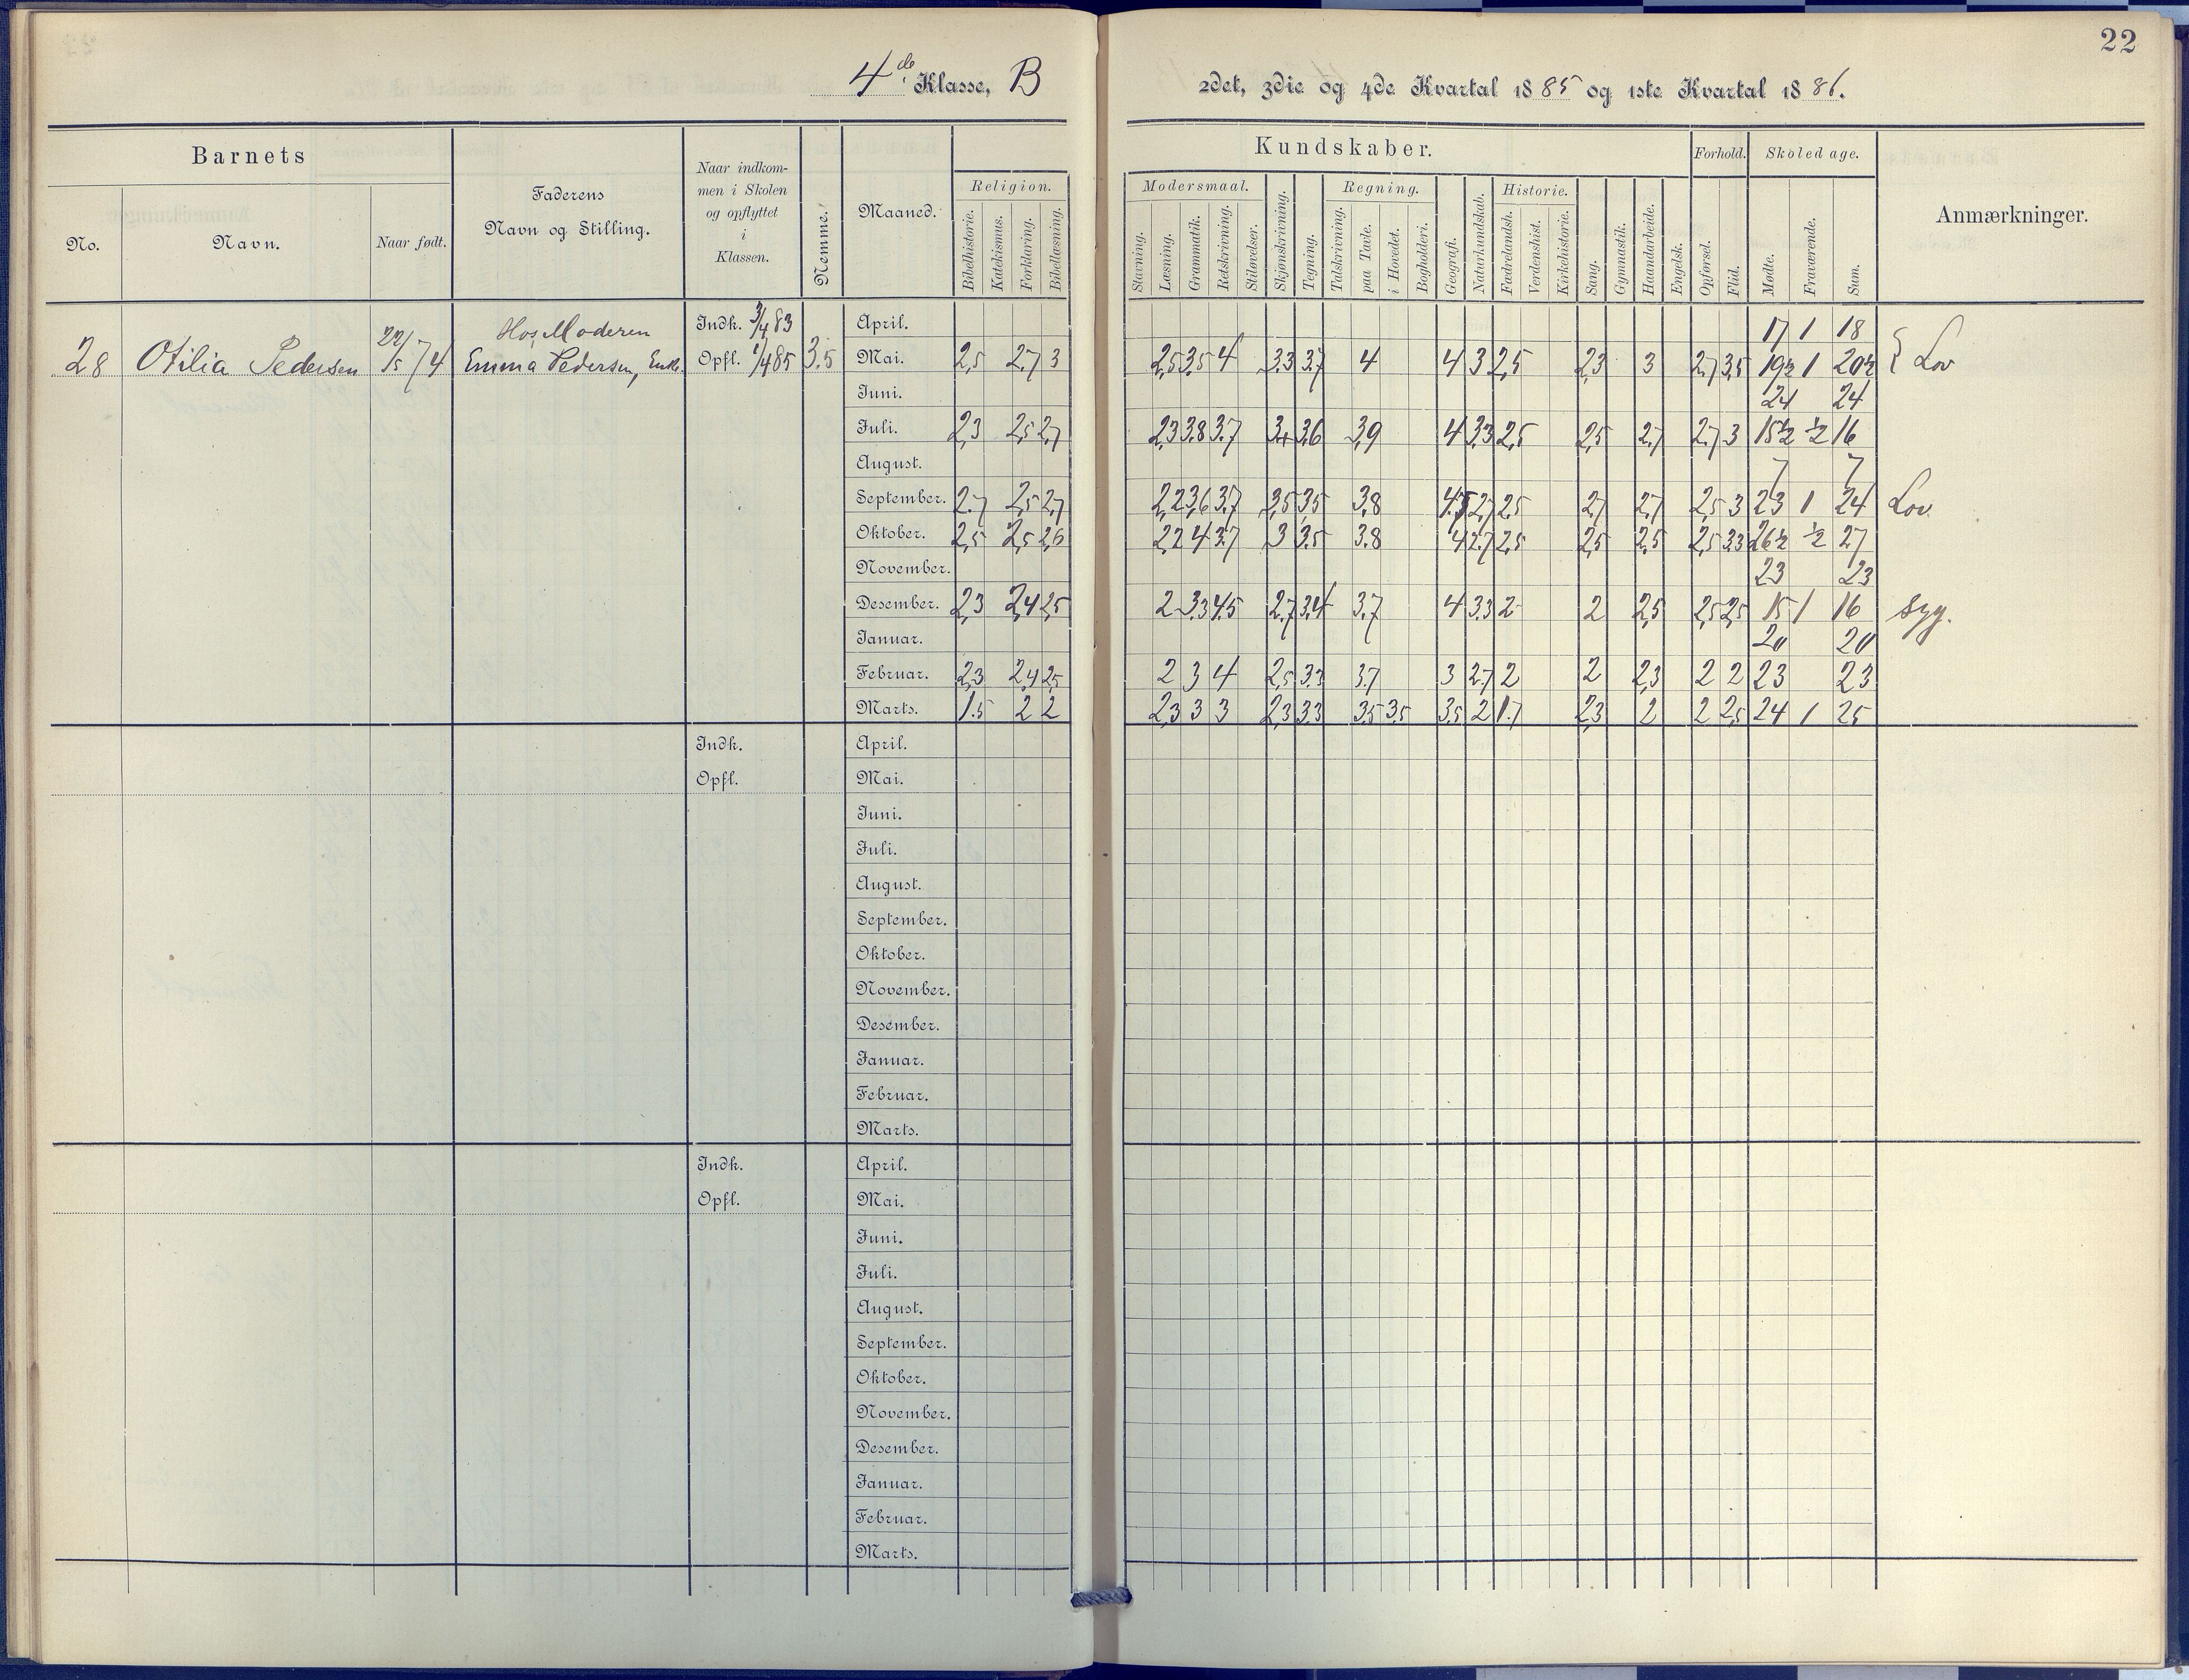 22
4de Klasse, B
2det, 3die og 4de Kvartal 1885 og 1ste Kvartal 1886.
Barnets
No.
Navn.
Naar født.
Faderens
Navn og Stilling.
Naar indkom-
men i Skolen
og opflyttet
i
Klassen.
Nemme.
Maaned.
Kundskaber.
Forhold.
Skoledage.
Anmærkninger.
Religion.
Bibelhistorie.
Katekismus.
Forklaring.
Bibellæsning.
Modersmaal.
Stavning.
Læsning.
Grammatik.
Retskrivning.
Stiløvelser.
Skjønskrivning.
Tegning.
Regning.
Talskrivning.
paa Tavle.
i Hovedet.
Bogholderi.
Geografi.
Naturkundskab.
Historie.
Fædrelandsh.
Verdenshist.
Kirkehistorie.
Sang.
Gymnastik.
Haandarbeide.
Engelsk.
Opførsel.
Flid.
Mødte.
Fraværende.
Sum.
Hos Moderen Indk. 3/4 83 April. 17 1 18
28 Otilia Pedersen 22/5 74 Emma Pedersen, Enke. Opfl. 1/4 85 3.5 Mai. 2,5 2.7 3 2,5 3,5 4 3.3 3.7 4 4 3 2,5 2,3 3 2.7 3,5 19½ 1 20½ } Lov
Juni. 24 24
Juli. 2,3 2,5 2,7 2,3 3.8 3.7 3,4 3,6 3,9 4 3,3 2,5 2,5 2,7 2.7 3 15½ ½ 16
August. 7 7
September. 2.7 2,5 2,7 2,2 3,6 3,7 3,5 3,5 3,8 4.5 2,7 2,5 2,7 2,7 2,5 3 23 1 24 Lov.
Oktober. 2,5 2,5 2,6 2,2 4 3.7 3 3.5 3.8 4 2.7 2,5 2,5 2,5 2,5 3.3 26½ ½ 27
November. 23 23
Desember. 2,3 2,4 2,5 2 3.3 4.5 2.7 3,4 3.7 4 3.3 2 2 2,5 2,5 2,5 15 1 16 Syg.
Januar. 20 20
Februar. 2,3 2,4 2,5 2 3 4 2,5 3.3 3.7 3 2.7 2 2 2,3 2 2 23 23
Marts. 1.5 2 2 2,3 3 3 2,3 3.3 3.5 3.5 3,5 2 1.7 2,3 2 2 2,5 24 1 25
Indk. April.
Opfl. Mai.
Juni.
Juli.
August.
September.
Oktober.
November.
Desember.
Januar.
Februar.
Marts.
Indk. April.
Opfl. Mai.
Juni.
Juli.
August.
September.
Oktober.
November.
Desember.
Januar.
Februar.
Marts.